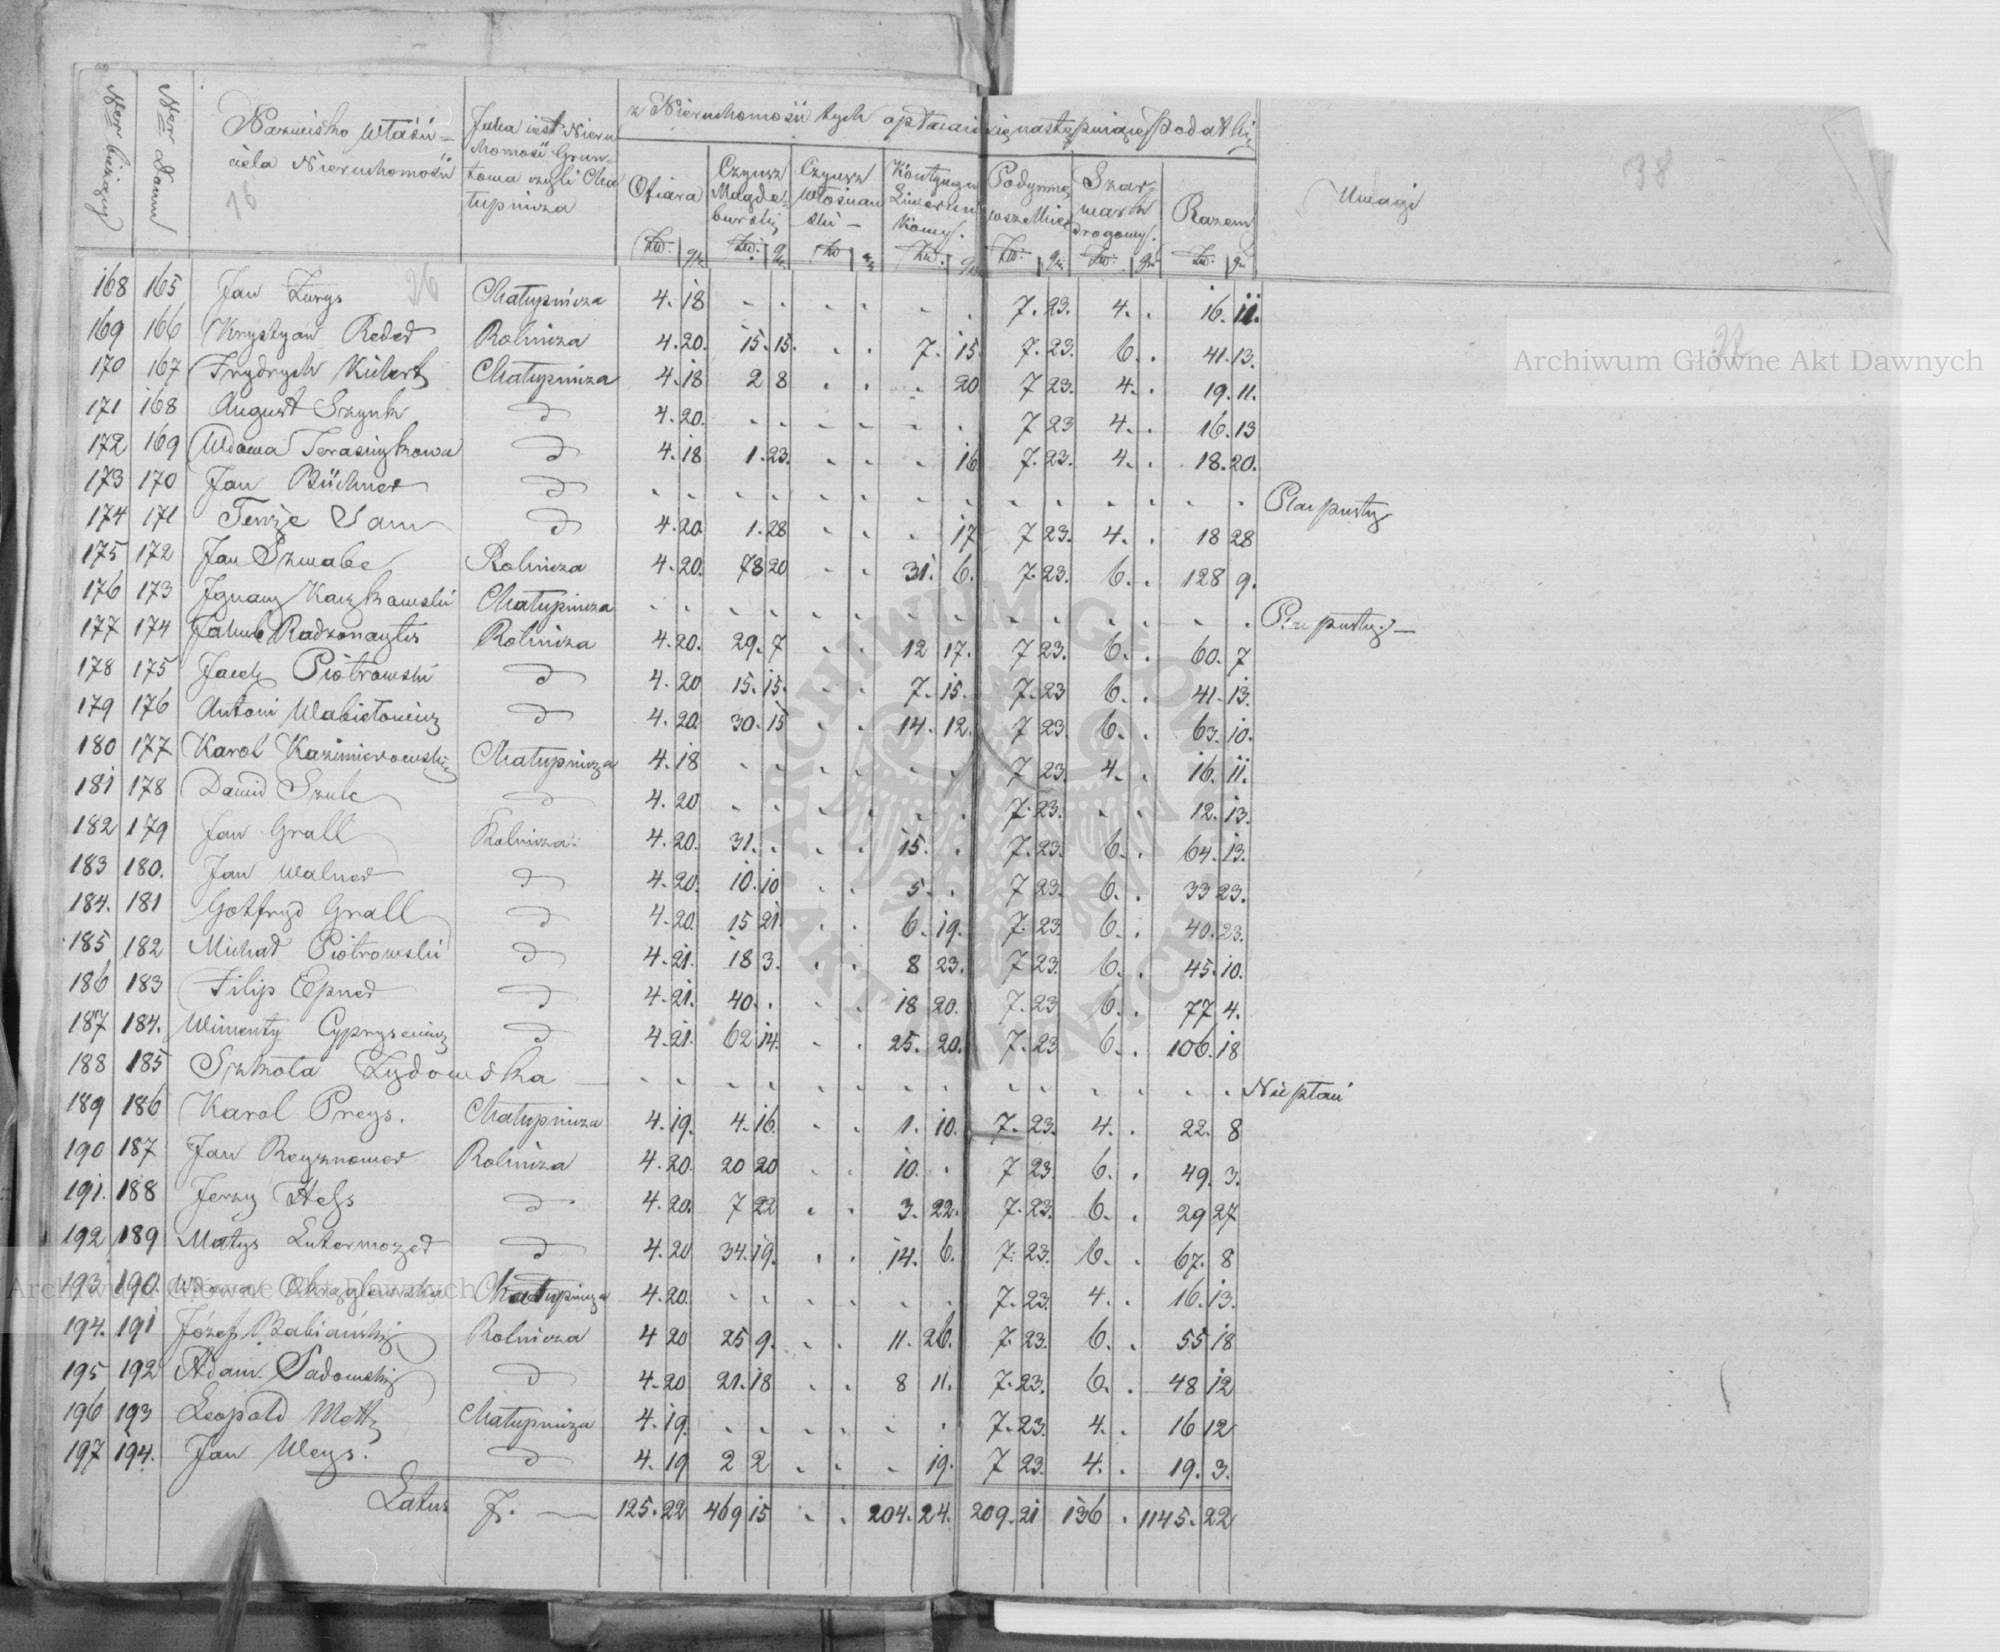 38
Ner bieżący Ner Domu Nazwisko właści= Jaka jest Nieru z Nieruchomości tych opłacaią się następuiące podatki Uwagi
ciela Nieruchomości chomość Grun=
towa czyli Cha
łupnicza
Ofiara Czynsz Magde= burski Czynsz włościań ski – Kontyngen Liwerun kowy. Podymne wszelkie Szar= wark drogowy. Razem
Zło. gr. Zło. gr. Zło gr Zło. gr. Zło. gr. Zło. gr. Zło. gr.
168 165 Jan Zurys Chałupnicza 4. 18 - . . . . . 7. 23. 4. . 16. 11.
169 166 Krystyan Reder Rolnicza 4. 20. 15. 15. . . 7. 15 7. 23. 6. . 41. 13.
170 167 Frydrych Kiehert Chałupnicza 4. 18 2 8 . . . 20 7 23. 4. . 19. 11.
171 168 August Szynk d 4. 20. . . . . . . 7 23 4. . 16. 13
172 169 Wdowa Terasińska d 4. 18 1. 23. . . . 16 7. 23. 4. . 18. 20.
173 170 Jan Büchner d . . . . . . . . . . . . . . Plac pusty
174 171 Tenże Sam d 4. 20 1. 28 . . . 17 7 23. 4. . 18 28
175 172 Jan Szwabe Rolnicza 4. 20. 78 20 . . 31. 6. 7. 23. 6. . 128 9.
176 173 Ignacy Kaczkowski Chałupnicza . . . . . . . . . . . . . . Plac pusty. –
177 174 Jakub Radzonaytis Rolnicza 4. 20. 29. 7 . . 12 17. 7 23. 6. . 60. 7
178 175 Jacek Piotrowski d 4. 20 15. 15. . . 7. 15. 7. 23 6. . 41. 13.
179 176 Antoni Wabietowicz d 4. 20. 30. 15 . . 14. 12. 7 23. 6. . 63. 10.
180 177 Karol Kazimierowski Chałupnicza 4. 18 . . . . . . 7 23. 4. . 16. 11.
181 178 Dawid Szulc d 4. 20 . . . . . . 7. 23. . . 12. 13.
182 179 Jan Grall Rolnicza. 4. 20. 31. . . . 15. . 7. 23. 6. . 64. 13.
183 180. Jan Walner d 4. 20. 10. 10 . . 5. . 7 23. 6. . 33 23.
184. 181 Gotfryd Grall d 4. 20. 15 21. . . 6. 19. 7. 23. 6. . 40. 23.
185 182 Michał Piotrowski d 4. 21. 18 3. . . 8 23. 7 23. 6. . 45. 10.
186 183 Filip Epner d 4. 21. 40. . . . 18 20. 7. 23 6. . 77 4.
187 184. Wincenty Cyprysewicz d 4. 21. 62 14. . . 25. 20. 7. 23 6. . 106. 18
188 185 Szkoła Żydowska – . . . . . . . . . . . . . . Nie płaci
189 186 Karol Preys. Chałupnicza 4. 19. 4. 16. . . 1. 10. 7. 23. 4. . 22. 8
190 187 Jan Reyznower Rolnicza 4. 20. 20 20 . . 10. . 7 23. 6. . 49. 3.
191. 188 Jerzy Hels d 4. 20. 7 22 . . 3. 22. 7. 23. 6. . 29 27
192 189 Matys Lutermozer d 4. 20 34. 19. . . 14. 6. 7. 23. 6. . 67. 8
193 190. Wdowa Okręglewska Chałupnicza 4. 20. . . . . . . 7. 23. 4. . 16. 13.
194. 191 Józef Babiański Rolnicza 4 20 25 9. . . 11. 26. 7. 23. 6. . 55 18
195 192 Adam Sadowski d 4. 20 21. 18 . . 8 11. 7. 23. 6. . 48 12
196 193 Leopold Mett Chałupnicza 4. 19. . . . . . . 7. 23. 4. . 16 12
197 194. Jan Weys. d 4. 19 2 2 . . . 19. 7 23. 4. . 19. 3.
Latus f. — 125. 22 469 15 . . 204. 24. 209. 21 136 . 1145. 22
Archiwum Główne Akt Dawnych
Archiwum Główne Akt Dawnych
ARCHIWUM GŁÓWNE AKT DAWNYCH